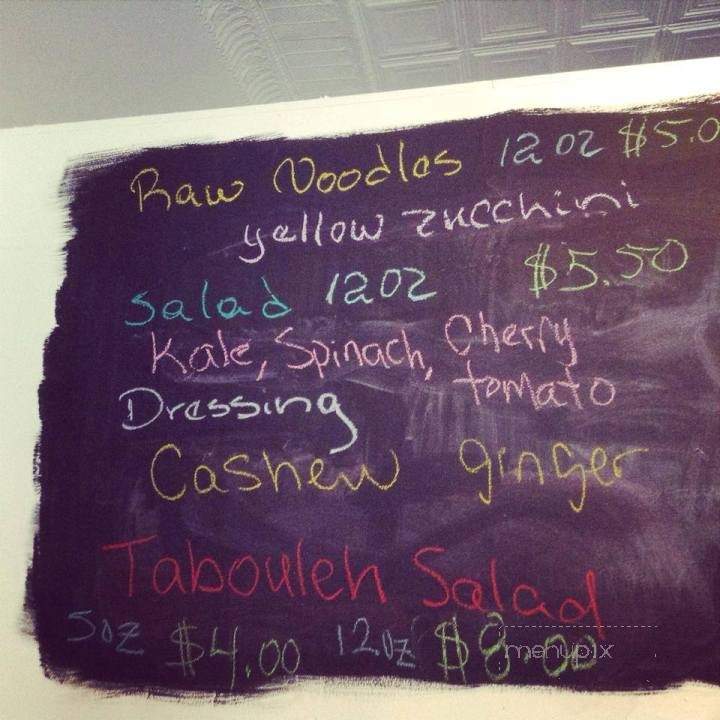 Raw Noodles 12oz $5.0
yellow zucchini
Salad 12oz $5.50
Kale, Spinach, Cherry
tomato
Dressing
Cashew ginger
Tabouleh Salad
5oz $4.00 12oz $8.00
menupix